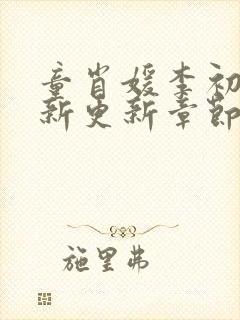 童肖媛李初
新更新章節
施里弗